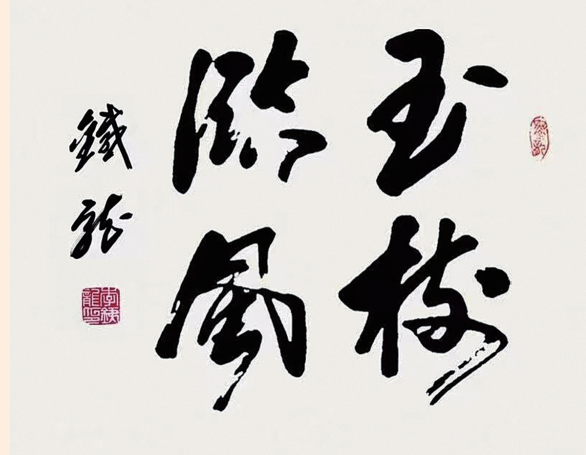 玉樹
臨風
鐵龍